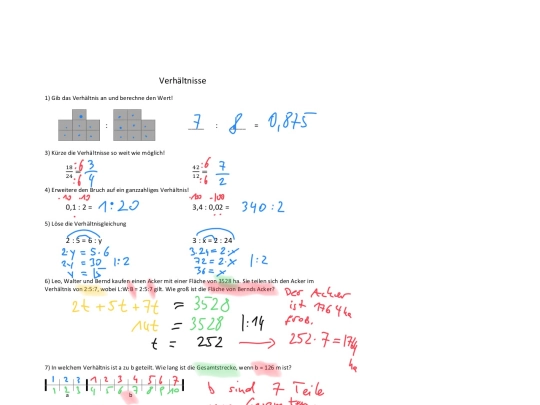 Verhältnisse
1) Gib das Verhältnis an und berechne den Wert!
: 7 : 8 = 0,875
3) Kürze die Verhältnisse so weit wie möglich!
18/24 :6 :6 3/4 42/12 :6 :6 7/2
4) Erweitere den Bruch auf ein ganzzahliges Verhältnis!
·10 ·10 ·100 ·100
0,1 : 2 = 1:20 3,4 : 0,02 = 340:2
5) Löse die Verhältnisgleichung
2 : 5 = 6 : y 3 : x = 2 : 24
2·y = 5·6 3·24 = 2·x
2y = 30 |:2 72 = 2·x |:2
y = 15 36 = x
6) Leo, Walter und Bernd kaufen einen Acker mit einer Fläche von 3528 ha. Sie teilen sich den Acker im
Verhältnis von 2:5:7, wobei L:W:B = 2:5:7 gilt. Wie groß ist die Fläche von Bernds Acker?
2t + 5t + 7t = 3528
14t = 3528 |:14
t = 252
Der Acker
ist 1764 ha
groß.
252·7=1764
ha
7) In welchem Verhältnis ist a zu b geteilt. Wie lang ist die Gesamtstrecke, wenn b = 126 m ist?
1 2 3 1 2 3 4 5 6 7
1 2 3 4 5 6 7 8 9 10
a b
b sind 7 Teile